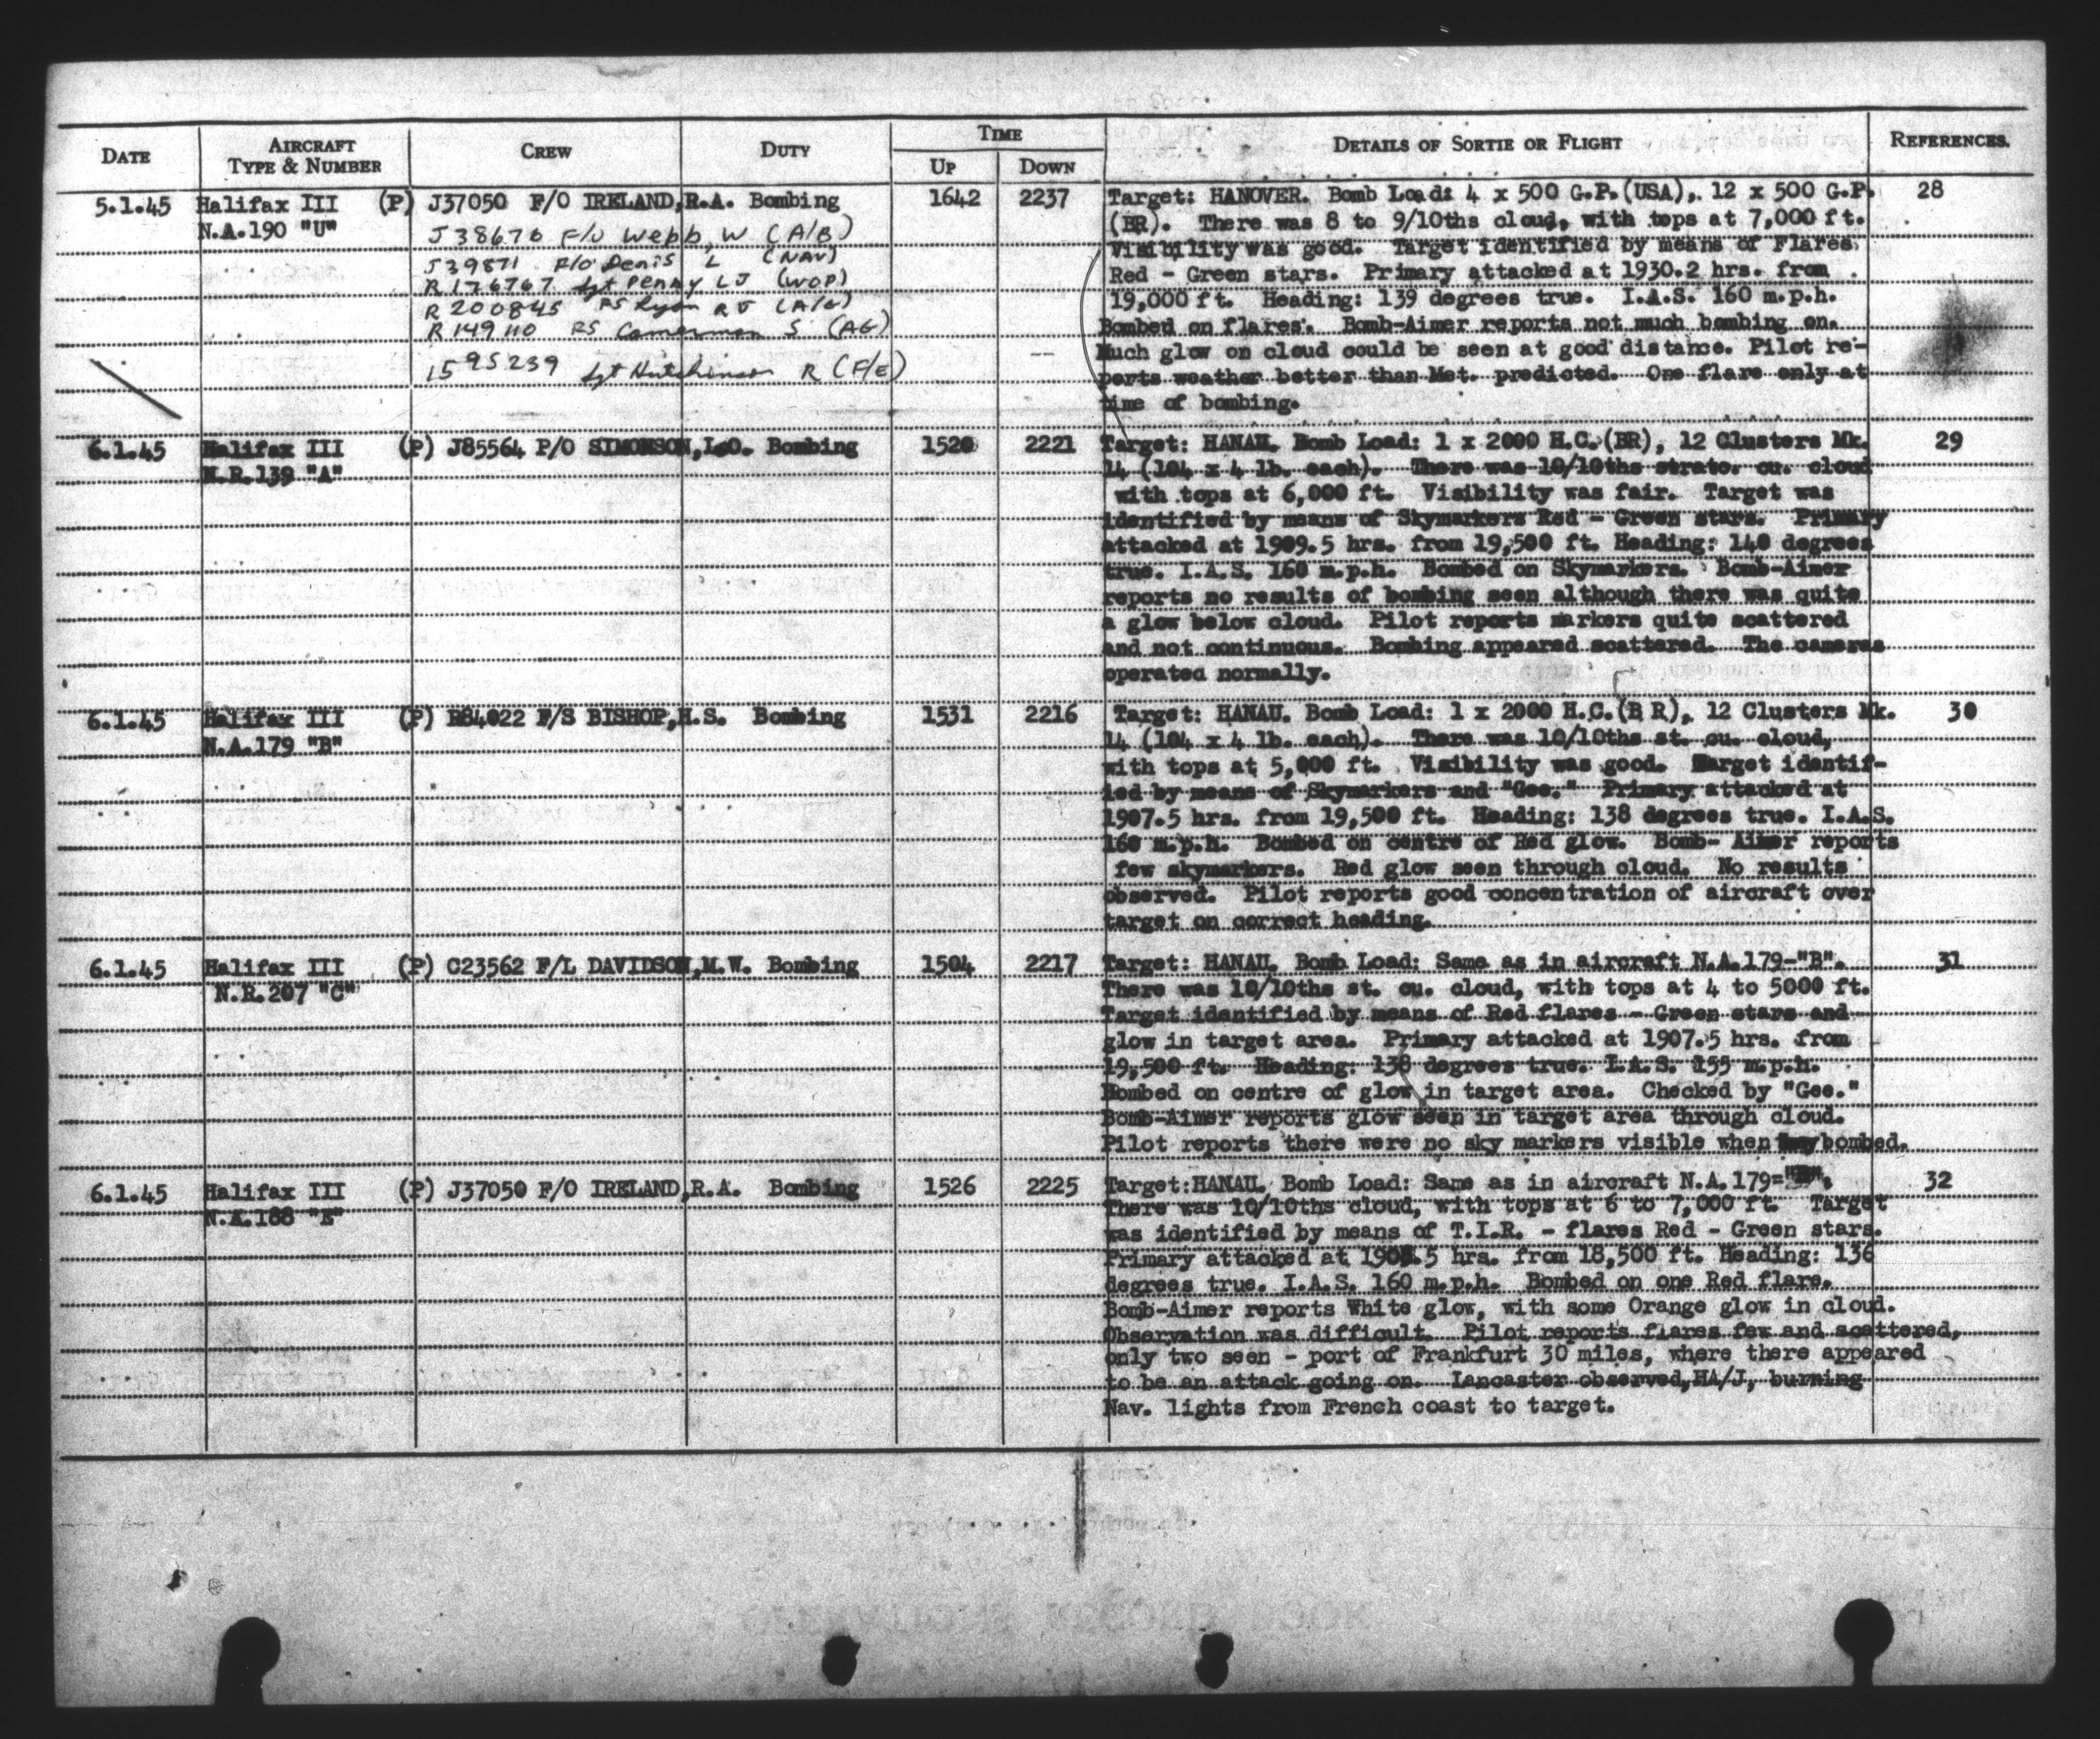 DATE AIRCRAFT TYPE & NUMBER CREW DUTY TIME UP DOWN DETAILS OF SORTIE OR FLIGHT REFERENCES.
5.1.45 Halifax III (P) J37050 F/O IRELAND,R.A. Bombing 1642 2237 Target: HANOVER. Bomb Load: 4 x 500 G.P.(USA), 12 x 500 G.P. 28
N.A.190 "U" (BR). There was 8 to 9/10ths cloud, with tops at 7,000 ft.
J38676 F/O Webb, W (A/B) Visibility was good. Target identified by means of Flares
J39871 F/O Denis L (NAV) Red - Green stars. Primary attacked at 1930.2 hrs. from
R176767 Sgt Penny LJ (WOP) 19,000 ft. Heading: 139 degrees true. I.A.S. 160 m.p.h.
R200845 FS Lyon RJ (A/G) Bombed on flares. Bomb-Aimer reports not much bombing on.
R149110 FS Camerman S (AG) Much glow on cloud could be seen at good distance. Pilot re-
1595239 Sgt Hutchinson R (F/E) ports weather better than Met. predicted. One flare only at
time of bombing.
6.1.45 Halifax III (P) J85564 P/O SIMONSON,L.O. Bombing 1520 2221 Target: HANAU. Bomb Load: 1 x 2000 H.C.(BR), 12 Clusters Mk. 29
N.R.139 "A" 14 (104 x 4 lb. each). There was 10/10ths strato. cu. cloud
with tops at 6,000 ft. Visibility was fair. Target was
identified by means of Skymarkers Red - Green stars. Primary
attacked at 1909.5 hrs. from 19,500 ft. Heading: 140 degrees
true. I.A.S. 160 m.p.h. Bombed on Skymarkers. Bomb-Aimer
reports no results of bombing seen although there was quite
a glow below cloud. Pilot reports markers quite scattered
and not continuous. Bombing appeared scattered. The cameras
operated normally.
6.1.45 Halifax III (P) R84022 F/S BISHOP,H.S. Bombing 1531 2216 Target: HANAU. Bomb Load: 1 x 2000 H.C.(B R), 12 Clusters Mk. 30
N.A.179 "B" 14 (104 x 4 lb. each). There was 10/10ths st. cu. cloud,
with tops at 5,000 ft. Visibility was good. Target identif-
ied by means of Skymarkers and "Gee." Primary attacked at
1907.5 hrs. from 19,500 ft. Heading: 138 degrees true. I.A.S.
160 m.p.h. Bombed on centre of Red glow. Bomb- Aimer reports
few skymarkers. Red glow seen through cloud. No results
observed. Pilot reports good concentration of aircraft over
target on correct heading.
6.1.45 Halifax III (P) C23562 F/L DAVIDSON,M.W. Bombing 1504 2217 Target: HANAU. Bomb Load: Same as in aircraft N.A.179-"B". 31
N.R.207 "C" There was 10/10ths st. cu. cloud, with tops at 4 to 5000 ft.
Target identified by means of Red flares - Green stars and
glow in target area. Primary attacked at 1907.5 hrs. from
19,500 ft. Heading: 138 degrees true. I.A.S. 155 m.p.h.
Bombed on centre of glow in target area. Checked by "Gee."
Bomb-Aimer reports glow seen in target area through cloud.
Pilot reports there were no sky markers visible when they bombed.
6.1.45 Halifax III (P) J37050 F/O IRELAND,R.A. Bombing 1526 2225 Target:HANAU. Bomb Load: Same as in aircraft N.A.179="B". 32
N.A.188 "E" There was 10/10ths cloud, with tops at 6 to 7,000 ft. Target
was identified by means of T.I.R. - flares Red - Green stars.
Primary attacked at hrs. from 18,500 ft. Heading: 136
degrees true. I.A.S. 160 m.p.h. Bombed on one Red flare.
Bomb-Aimer reports White glow, with some Orange glow in cloud.
Observation was difficult. Pilot reports flares few and scattered,
only two seen - port of Frankfurt 30 miles, where there appeared
to be an attack going on. Lancaster observed,HA/J, burning
Nav. lights from French coast to target.